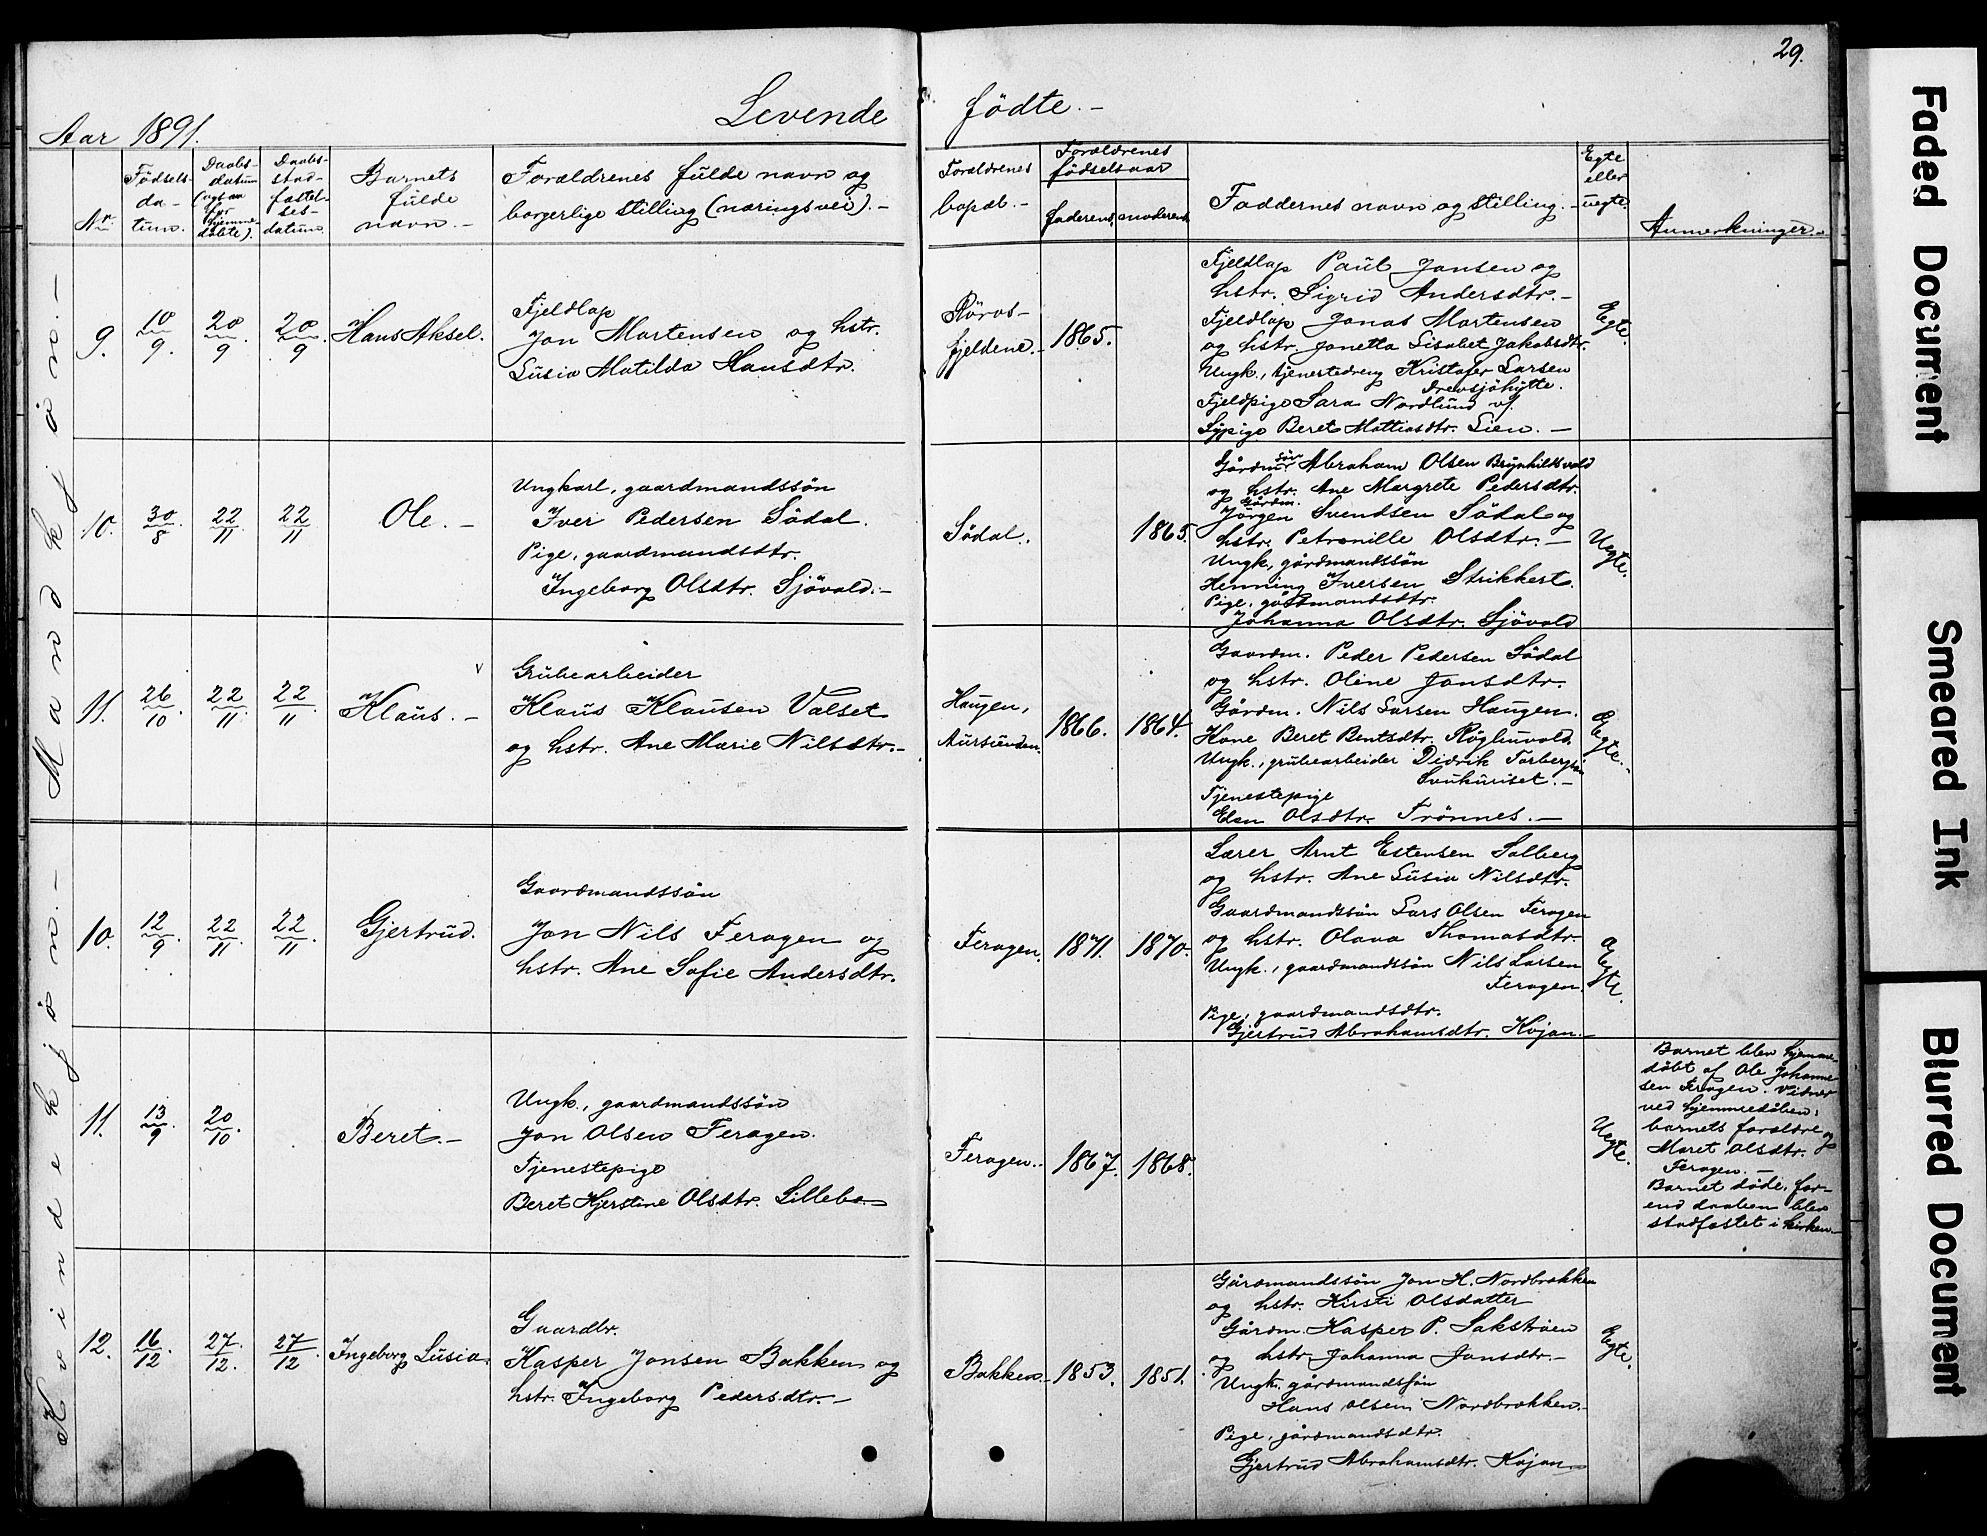 29.
Levende fødte.-
Aar 1891.
No.
Fødsels-
da-
tum.
Daabs-
datum
(ogsaa
for
hjemme-
døbte).
Daabs-
stad-
fæstel-
ses-
datum.
Barnets
fulde
navn.-
Forældrenes fulde navn og
borgerlige stilling (næringsvei).-
Forældrenes
bopæl.-
Forældrenes
fødselsaar
faderens.
moderens.
Faddernes navn og stilling.-
Egte
eller
uegte.
Anmerkninger.-
Mandkjøn.-
9.
10/9.
20/9.
20/9.
Hans Aksel.
Fjeldlap
Jon Mortensen og hstr.
Lusia Matilda Hansdtr.
Røros-
fjeldene.-
1865.
Fjeldlap Paul Jonsen og
hstr. Sigrid Andersdtr.-
Fjeldlap Jonas Mortensen
og hstr. Jonetta Lisabet Jakobsdtr.
Ungk., tjenestedreng Kristofer Larsen
Drevsjøhytte.
Fjeldpige Sara Nordlund
Sypige Beret Mattiasdtr. Lien.-
Egte.
10.
30/8
22/11
22/11
Ole.-
Ungkarl, gaardmandssøn
Iver Pedersen Sødal.
Pige, gaardmandsdtr.
Ingeborg Olsdtr. Sjøvold.-
Sødal.
1865.
Gårdm. søn Abraham Olsen Brynhildsvold
og hstr. Ane Margrete Pedersdtr.
Gårdm.
Jørgen Svendsen Sødal og
hstr. Petronille Olsdtr.-
Ungk, gårdmandssøn
Henning Iversen Strikkert.
Pige, gårdmandsdtr.
Johanna Olsdtr. Sjøvold
Uegte.
11.
26/10.
22/11
22/11
Klaus.-
Grubearbeider
Klaus Klausen Valset
og hstr. Ane Marie Nilsdtr.-
Haugen,
Aursunden.
1866.
1864.
Gaardm. Peder Pedersen Sødal
og hstr. Oline Jonsdtr.
Gårdm. Nils Larsen Haugen.
Kone Beret Bentsdtr.
Ungk., grubearbeider Didrik
Tjenestepige
Elen Olsdtr. Trønnes.-
Egte.-
Kvindekjøn.-
10.
12/9.
22/11
22/11.
Gjertrud.
Gaardmandssøn
Jon Nils Feragen og
hstr. Ane Sofie Andersdtr.
Feragen.
1871.
1870.
Lærer Arnt Estensen Solberg
og hstr. Ane Lusia Nilsdtr.
Gaardmandssøn Lars Olsen Feragen
og hstr. Olava Thomasdtr.
Ungk., gaardmandssøn Nils Larsen
Feragen.
Pige, gaardmandsdtr.
Gjertrud Abrahamsdtr. Kojan.-
Egte.
11.
13/9
20/10.
Beret.-
Ungk., gaardmandssøn
Jon Olsen Feragen.
Tjenestepige
Beret Kjerstine Olsdtr. Lillebo.-
Feragen.
1867.
1868.
Uegte.
Barnet blev hjemme-
døbt af Ole Johanne-
sen Feragen. Vidner
ved hjemmedåben:
barnets forældre og
Maret Olsdtr.
Feragen.-
Barnet døde, for-
end daaben blev
stadfæstet i kirken.-
12.
16/12
27/12.
27/12.
Ingeborg Lusia.
Gaardbr.
Kasper Jonsen Bakken og
hstr. Ingeborg Pedersdtr.-
Bakken.-
1853.
1851.
Gårdmandssøn Jon H. Nordbrekken
og hstr. Kirsti Olsdatter
Gårdm. Kasper P. Sakstrøen
og hstr. Johanna Jonsdtr.-
Ungk. gårdmandssøn
Hans Olsen Nordbrekken.-
Pige, gårdmandsdtr.
Gjertrud Abrahamsdtr. Kojan.-
Egte.
Faded Document
Smeared Ink
Blurred Document